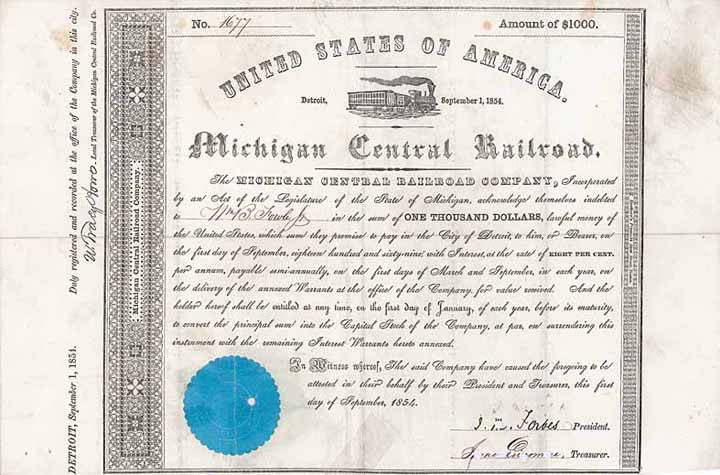 No. 1677 Amount of $1000.
UNITED STATES OF AMERICA.
Detroit, September 1, 1854.
Michigan Central Railroad.
The MICHIGAN CENTRAL RAILROAD COMPANY, Incorporated
by an Act of the Legislature of the State of Michigan, acknowledge themselves indebted
to Wm B. Fowle Jr in the sum of ONE THOUSAND DOLLARS, lawful money of
the United States, which sum they promise to pay in the City of Detroit, to him, or Bearer, on
the first day of September, eighteen hundred and sixty-nine, with Interest, at the rate of EIGHT PER CENT.
per annum, payable semi-annually, on the first days of March and September, in each year, on
the delivery of the annexed Warrants at the office of the Company, for value received. And the
holder hereof shall be entitled at any time, on the first day of January, of each year, before its maturity,
to convert the principal sum into the Capital Stock of the Company, at par, on surrendering this
instrument with the remaining Interest Warrants hereto annexed.
In Witness whereof, The said Company have caused the foregoing to be
attested in their behalf by their President and Treasurer, this first
day of September, 1854.
J. M. Forbes President.
Treasurer.
Michigan Central Railroad Company.
Michigan Central Railroad Company.
DETROIT, September 1, 1854. Duly registered and recorded at the office of the Company in this city.
Local Treasurer of the Michigan Central Railroad Co.